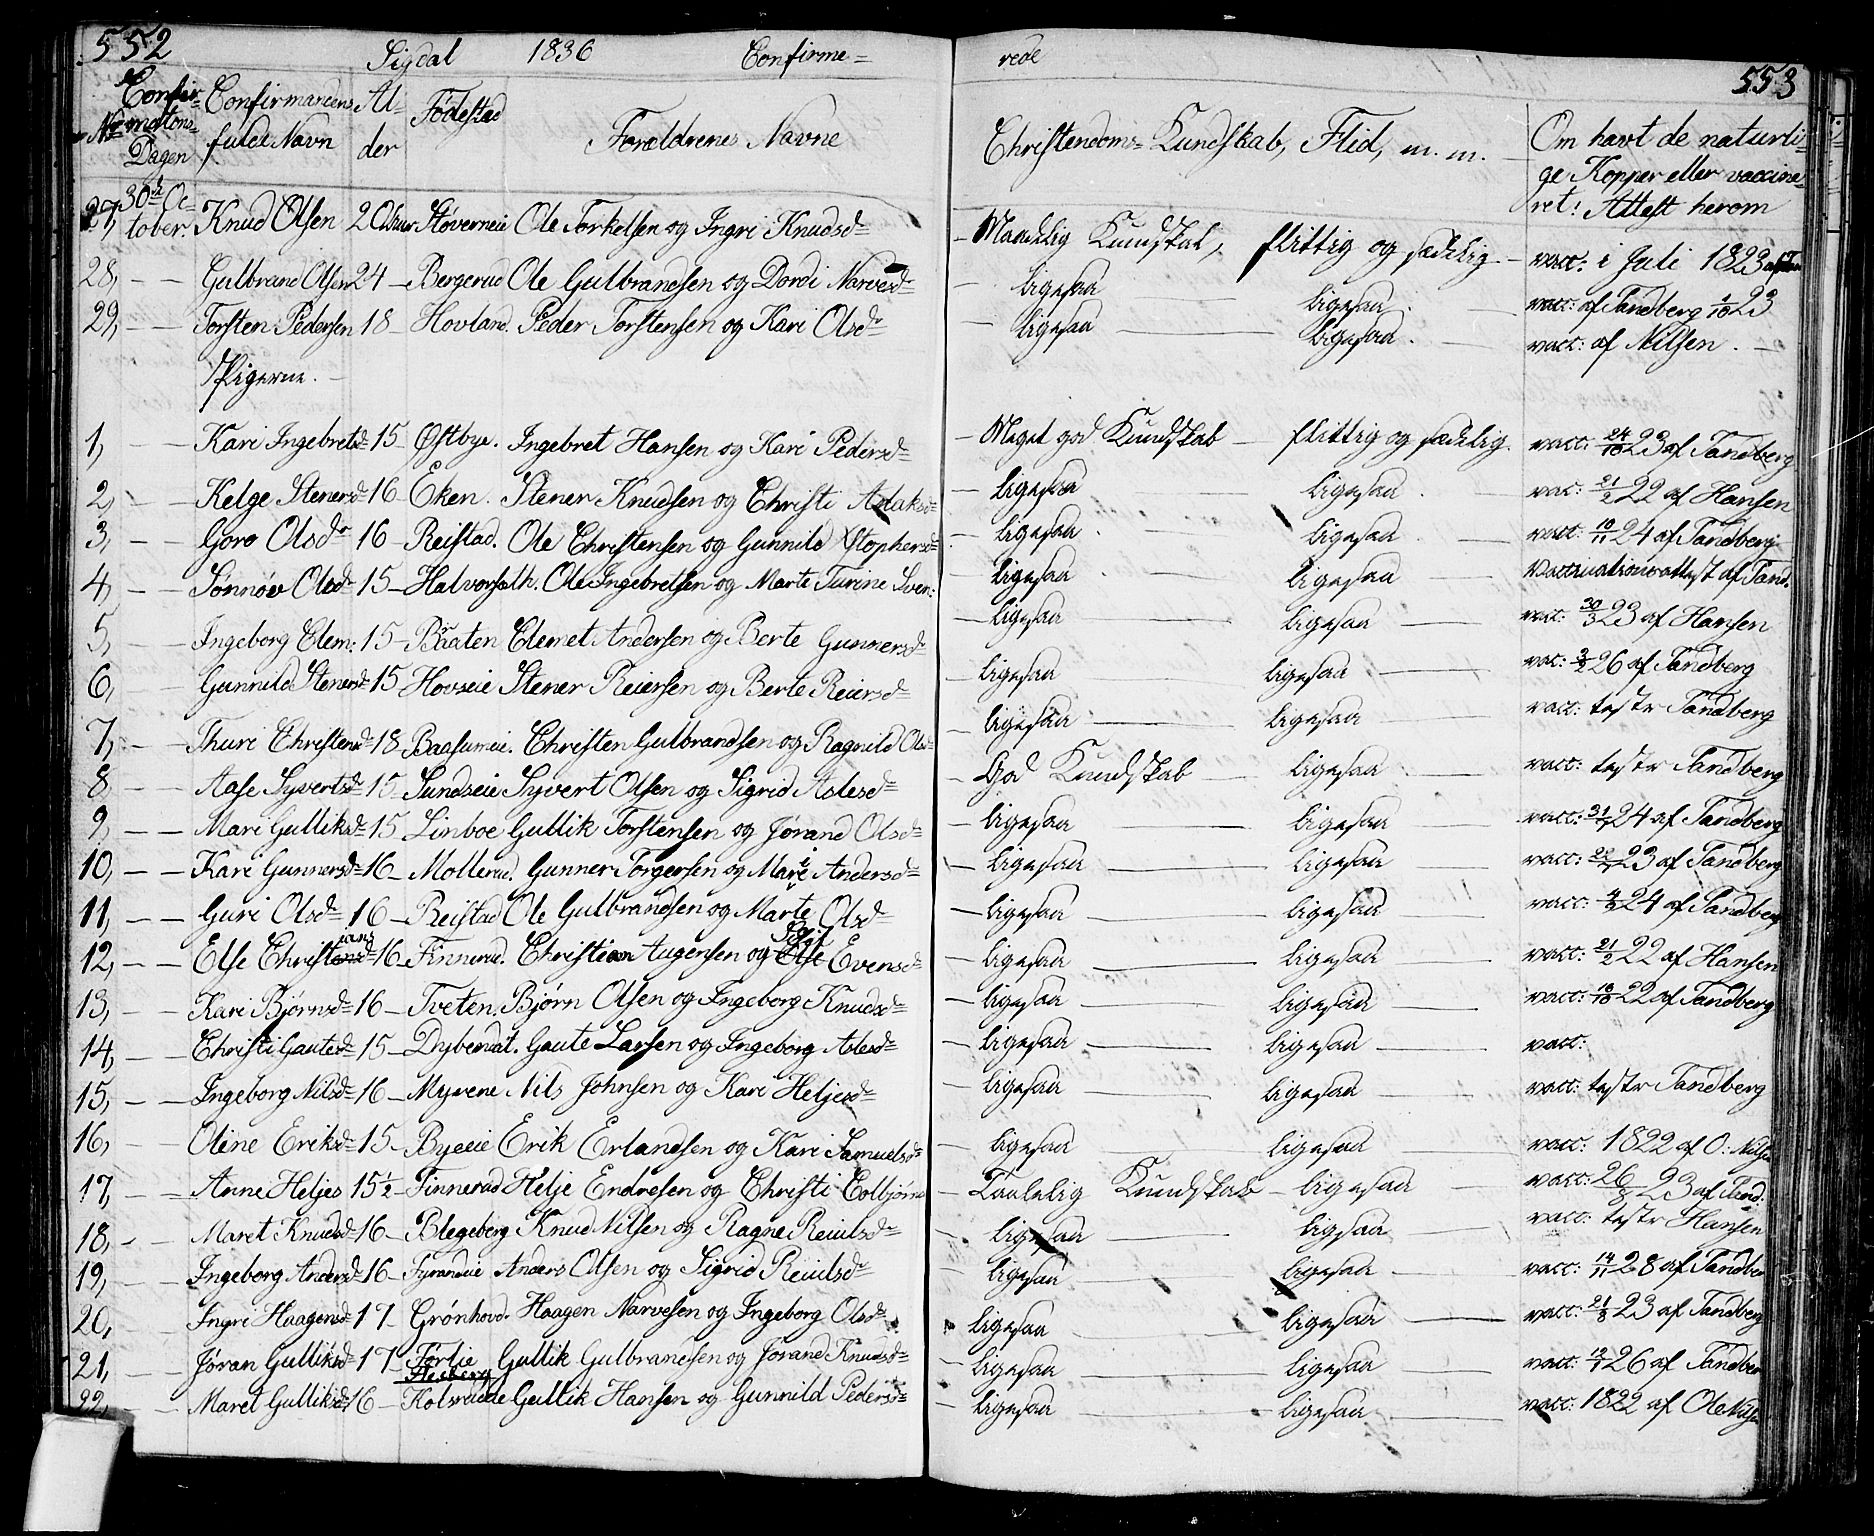 552 Sigdal 1836 Confirme= rede 553
No Confir-mations-Dagen Confirmandens fulde Navn Al-der Fødestad Forældrenes Navne Christendoms-Kundskab, Flid, m. m. Om havt de naturli-ge Kopper eller vaccine-ret! Attest herom
27, 30te Oc-tober. Knud Olsen 20 Støverneie Ole Torkelsen og Ingri Knudsd. – Maadelig Kundskab, flittig og sædelig – vacc: i Juli 1823
28, – – Gulbrand Olsen 24 – Bergerud Ole Gulbrandsen og Dordi Narvesd. – ligesaa ligesaa . vacc: af Tandberg 1/10 23
29, – – Torsten Pedersen 18 – Hovland. Peder Torstensen og Kari Olsd. – ligesaa – ligesaa . – vacc: af Nilsen . –
Pigerne. –
1, – – Kari Ingebretsd. 15 Østbye. Ingebret Hansen og Kari Pedersd. – Meget god Kundskab – flittig og sædelig. vacc: 24/10 23 af Tandberg
2, – – Helge Stenersd. 16 – Eken. Stener Knudsen og Christi Aslaksd. – ligesaa – ligesaa . vac: 21/2 22 af Hansen
3, – – Goro Olsd. 16 Reistad. Ole Christensen og Gunnild Xstophersd. – ligesaa . – ligesaa . – vacc: 10/11 24 af Tandberg
4, – – Sønnøv Olsd. 15 – Halvorseth. Ole Ingebretsen og Marte Turine Sven: – ligesaa – ligesaa Vaccinationsattest af Tand.
5, – – Ingeborg Clem: 15 – Braaten Clemet Andersen og Berte Gunnersd. – ligesaa – ligesaa – vac: 30/3 23 af Hansen
6, – – Gunnild Stenersd. 15 Hovseie Stener Reiersen og Berte Reiersd. – ligesaa ligesaa – vac: 3/2 26 af Tandberg
7, – – Thuri Christensd. 18 Baasumeie. Christen Gulbrandsen og Ragnild Olsd. – ligesaa – ligesaa vacc: testr Tandberg
8, – – Aase Syvertsd. 15 – Sundseie Syvert Olsen og Sigrid Aslesd. – God Kundskab – ligesaa – vacc: testr Tandberg
9, – – Mari Gulliksd. 15 Linboe Gullik Torstensen og Jørand Olsd. – ligesaa – ligesaa vacc: 24 af Tandberg
10, – – Kari Gunnersd. 16 – Mollerud. Gunner Torgersen og Mari Andersd. – ligesaa – ligesaa vacc: 23 af Tandberg
11, – – Guri Olsd. 16 – Reistad Ole Gulbrandsen og Marte Olsd. – ligesaa – ligesaa vacc: 24 af Tandberg
12, – – Else Christians 16 – Finnerud. Christian Augensen og Else Evensd. – ligesaa – ligesaa – vacc: 21/2 22 af Hansen
13, – – Kari Bjørnsd. 16 – Tveten. Bjørn Olsen og Ingeborg Knudsd. – ligesaa – ligesaa vacc: 18/10 22 af Tandberg
14, – – Christi Gautesd. 15 – Dybendal. Gaute Larsen og Ingeborg Aslesd. – ligesaa – ligesaa – vacc:
15, – – Ingeborg Nilsd. 16 – Myrene Nils Johnsen og Kari Heljesd. – ligesaa – ligesaa – vacc: testr Tandberg
16, – – Oline Eriksd. 15 – Byeeie Erik Erlandsen og Kari Samuelsd. – ligesaa – ligesaa – vacc: 1822 af O: Nilsen
17, – – Anne Heljes 15½ – Finnerud Helje Endresen og Christi Colbjørns – Taalelig Kundskab – ligesaa – vacc: 26/8 23 af Tand:
18, – – Maret Knudsd. 16 – Blegeberg Knud Nilsen og Ragne Reiulsd. ligesaa – ligesaa – vacc: testr Hansen
19, – – Ingeborg Andersd. 16 – Fyrandeie Anders Olsen og Sigrid Reiulsd. – ligesaa ligesaa – vacc: 14/11 28 af Tandber
20, – – Ingri Haagensd. 17 – Grønhovd. Haagen Narvesen og Ingeborg Olsd. ligesaa – ligesaa – vacc: 21/8 23 af Tandberg
21, – – Jøran Gulliksd. 17 – Førlie Gullik Gulbrandsen og Jørand Knudsd. – ligesaa – ligesaa – vacc: 26 af Tandber
22, – – Maret Gulliksd. 16 – Kolsrudde Gullik Hansen og Gunnild Pedersd. – ligesaa – ligesaa – vacc: 1822 af Ole Nilsen